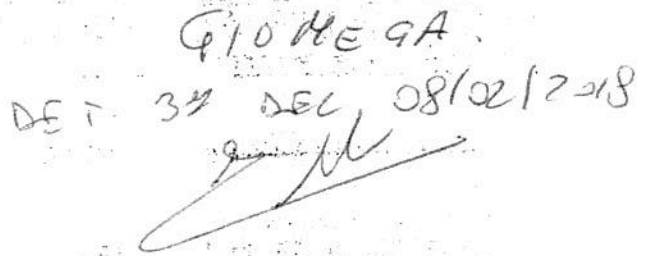 GIOMEGA.
DET. 37 DEL 08/02/2018